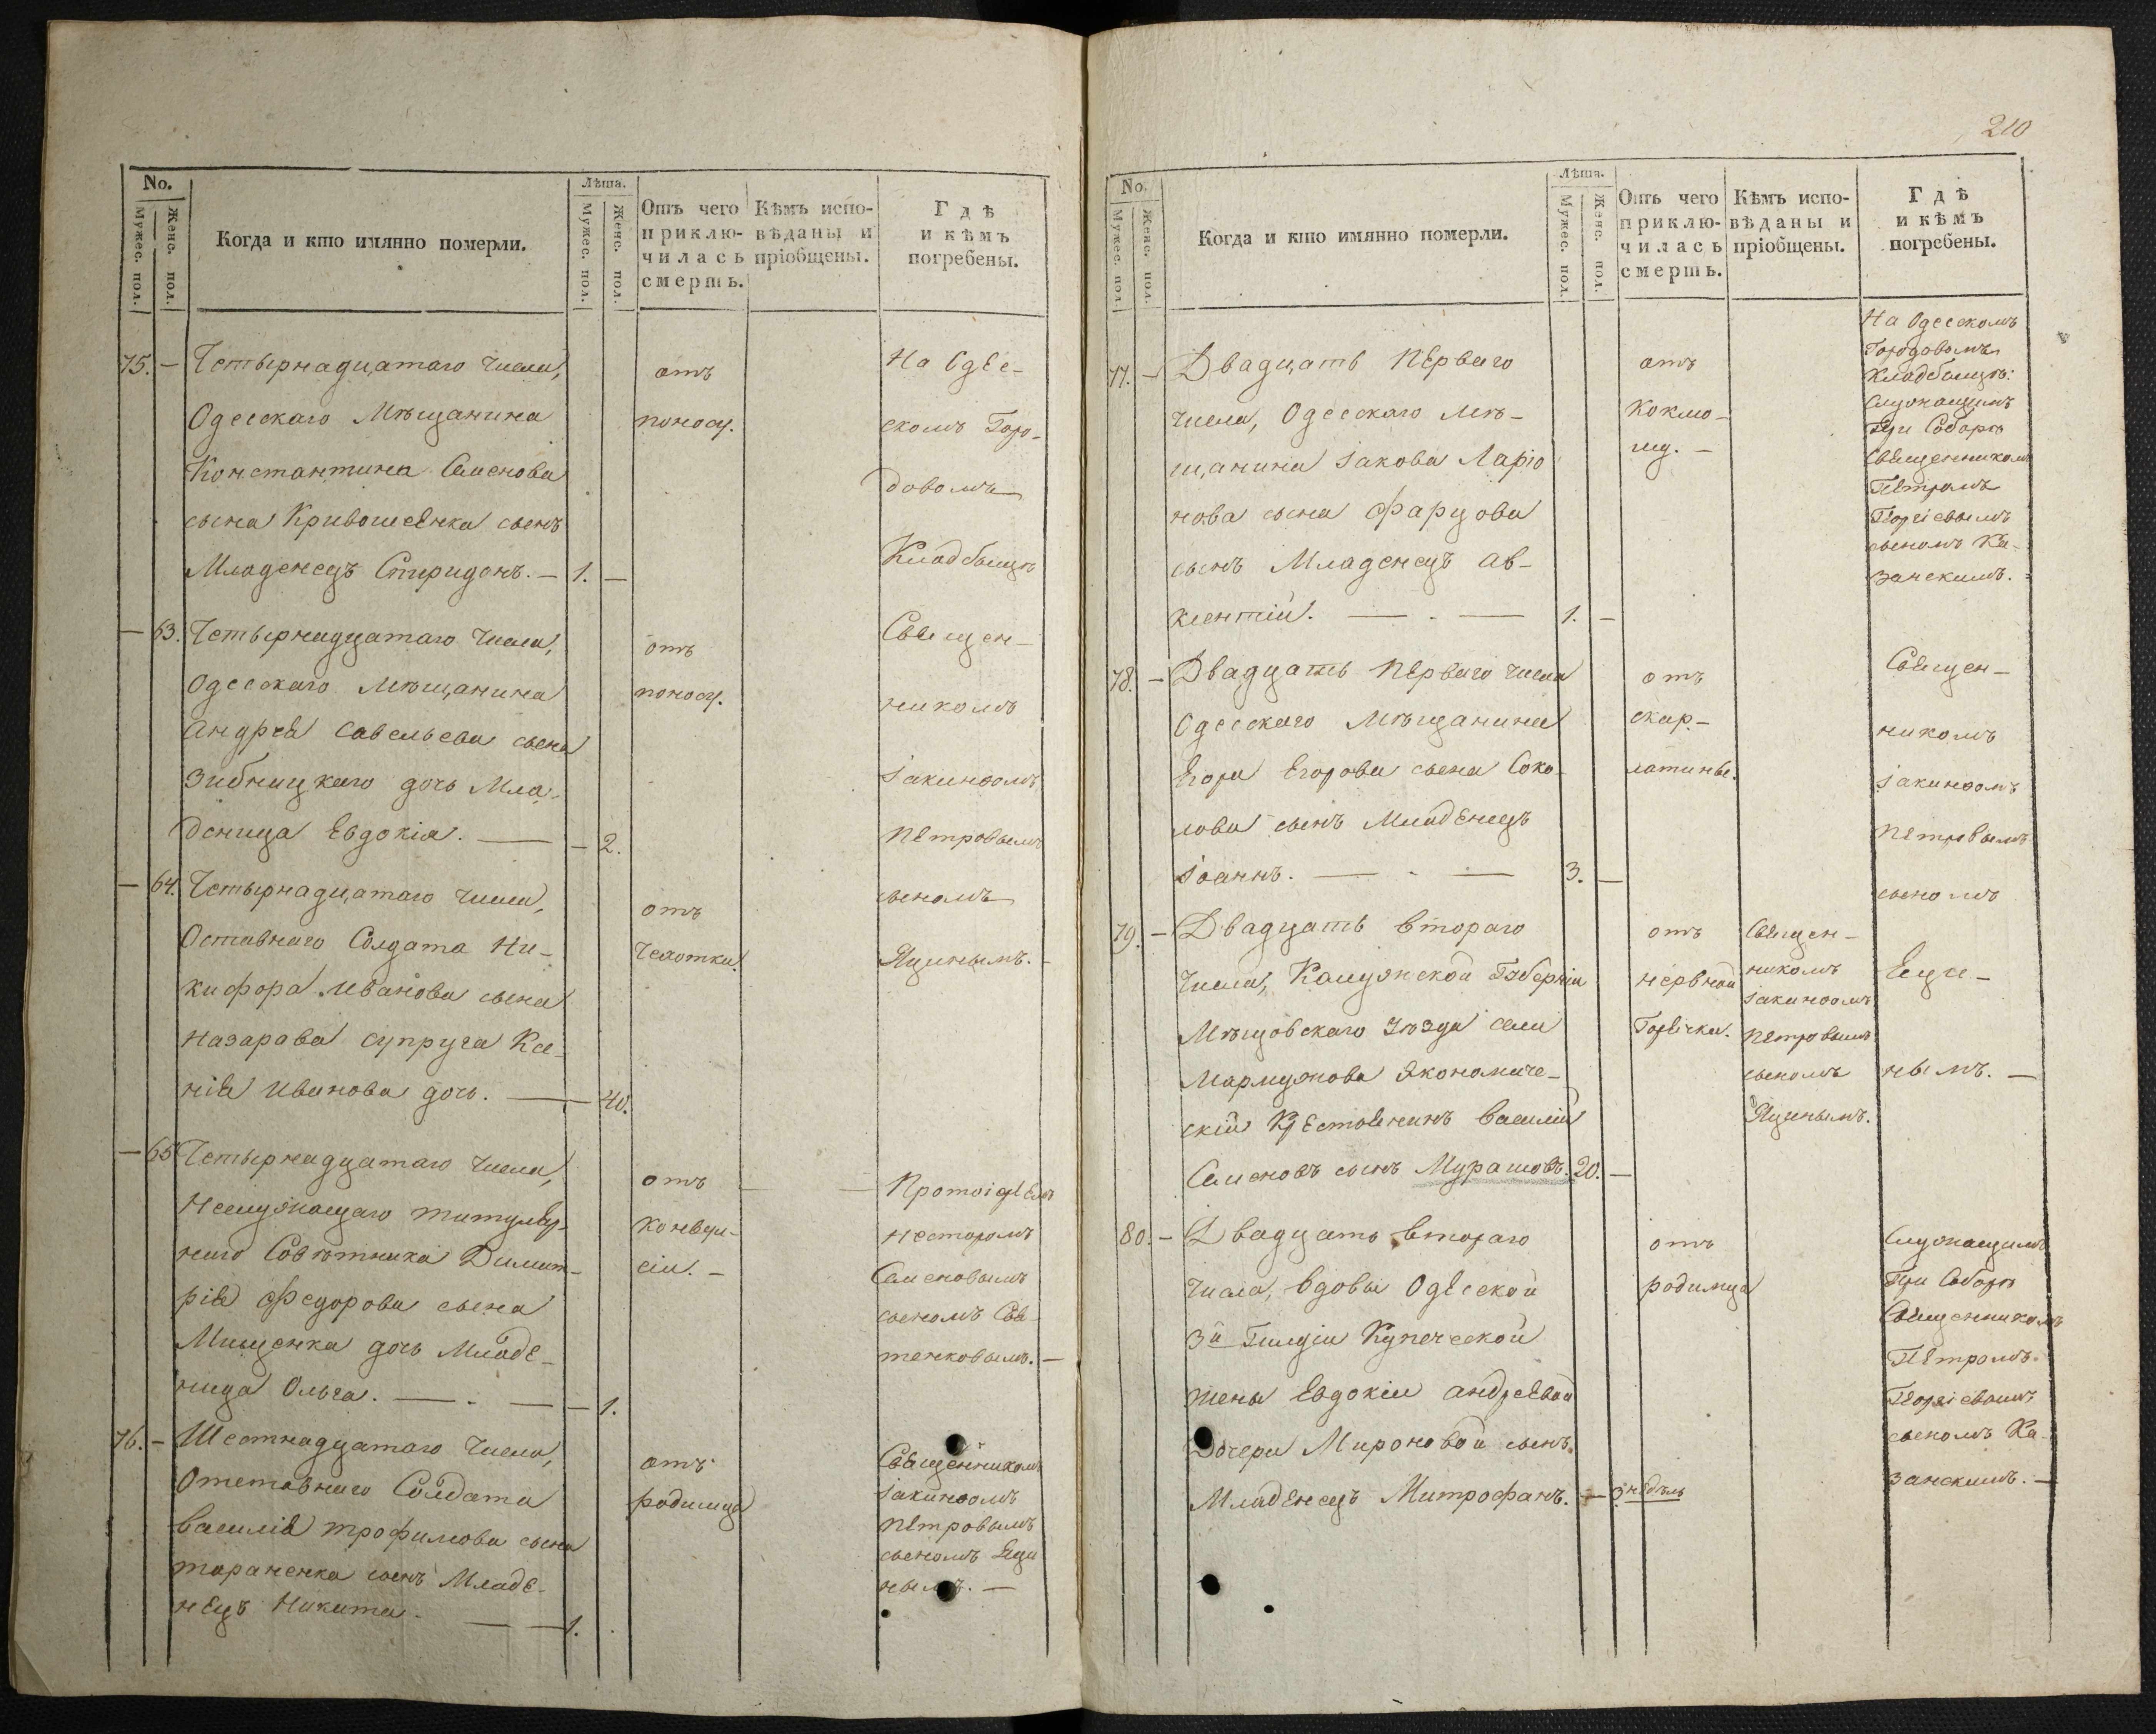 No.
Мужес. пол.
Женс. пол.
Когда и кто имянно померли.
Лѣта.
Мужес. пол.
Женс. пол.
Отъ чего приклю-
чилась смерть.
Кѣмъ испо-
вѣданы и
пріобщены.
Гдѣ
и кѣмъ
погребены.
75. — Четырнадцатаго числа,
Одесскаго Мѣщанина
Константина Семенова
сына Кривошеенка сынъ
Младенецъ Спиридонъ. — 1. —
отъ
поносу.
На Одес-
скомъ Горо-
довомъ
Кладбищѣ
— 63. Четырнадцатаго числа,
Одесскаго Мѣщанина
Андрея Савельева сына
Зибницкаго дочь Мла-
деница Евдокія. — — 2.
отъ
поносу.
Священ-
никомъ
Іакинѳомъ
Петровымъ
— 64. Четырнадцатаго числа,
Отставнаго Солдата Ни-
кифора Иванова сына
Назарова супруга Ксе-
нія Иванова дочь. — — 40.
отъ
Чехотки.
сыномъ
Яцинымъ. —
— 65 Четырнадцатаго числа,
Неслужащаго титуляр-
наго Совѣтника Димит-
рія Федорова сына
Мищенка дочь Младе-
ница Ольга. — . — — 1.
отъ
конвул-
сіи. —
Протоіереемъ
Несторомъ
Семеновымъ
сыномъ
тенковымъ. —
76. — Шестнадцатаго числа,
Отставнаго Солдата
Василія Трофимова сына
Тараненка сынъ Младе-
нецъ Никита. — — 1.
отъ
родимца
Священникомъ
Іакинѳомъ
Петровымъ
сыномъ Яци
нымъ. —
210
No.
Мужес. пол.
Женс. пол.
Когда и кто имянно померли.
Лѣта.
Мужес. пол.
Женс. пол.
Отъ чего
приклю-
чилась
смерть.
Кѣмъ испо-
вѣданы и
пріобщены.
Гдѣ
и кѣмъ
погребены.
77. — Двадцать перваго
числа, Одесскаго Мѣ-
щанина Іакова Ларіо
нова сына Фарцова
сынъ Младенецъ Ав-
ксентій. — . — 1. —
отъ
Коклю-
шу. —
На Одесскомъ
Городовомъ
Кладбищѣ:
Служащимъ
При Соборѣ
Священникомъ
Петромъ
Георгіевымъ
сыномъ Ка-
занскимъ. —
78. — Двадцать перваго числа
Одесскаго Мѣщанина
Егора Егорова сына Соко-
лова сынъ Младенецъ
Іоаннъ. — . — 3. —
отъ
скар-
латины.
Священ-
никомъ
Іакинѳомъ
Петровымъ
сыномъ
79. — Двадцать втораго
Числа, Калужской Губерніи
Мѣщовскаго Уѣзда села
Мармужова Экономиче-
скій Крестьянинъ Василій
Семеновъ сынъ Мурашовъ. 20. —
отъ
нервной
Горячки.
Священ-
никомъ
Іакинѳомъ
Петровымъ
сыномъ
Яцинымъ.
Яци-
нымъ. —
80. — Двадцать втораго
Числа, вдовы Одесской
3й Гилдіи Купеческой
жены Евдокіи Андреевой
Дочери Мироновой сынъ
Младенецъ Митрофанъ. — недѣль
отъ
родимца
Служащимъ
При Соборѣ
Священникомъ
Петромъ
Георгіевымъ
сыномъ Ка-
занскимъ. —